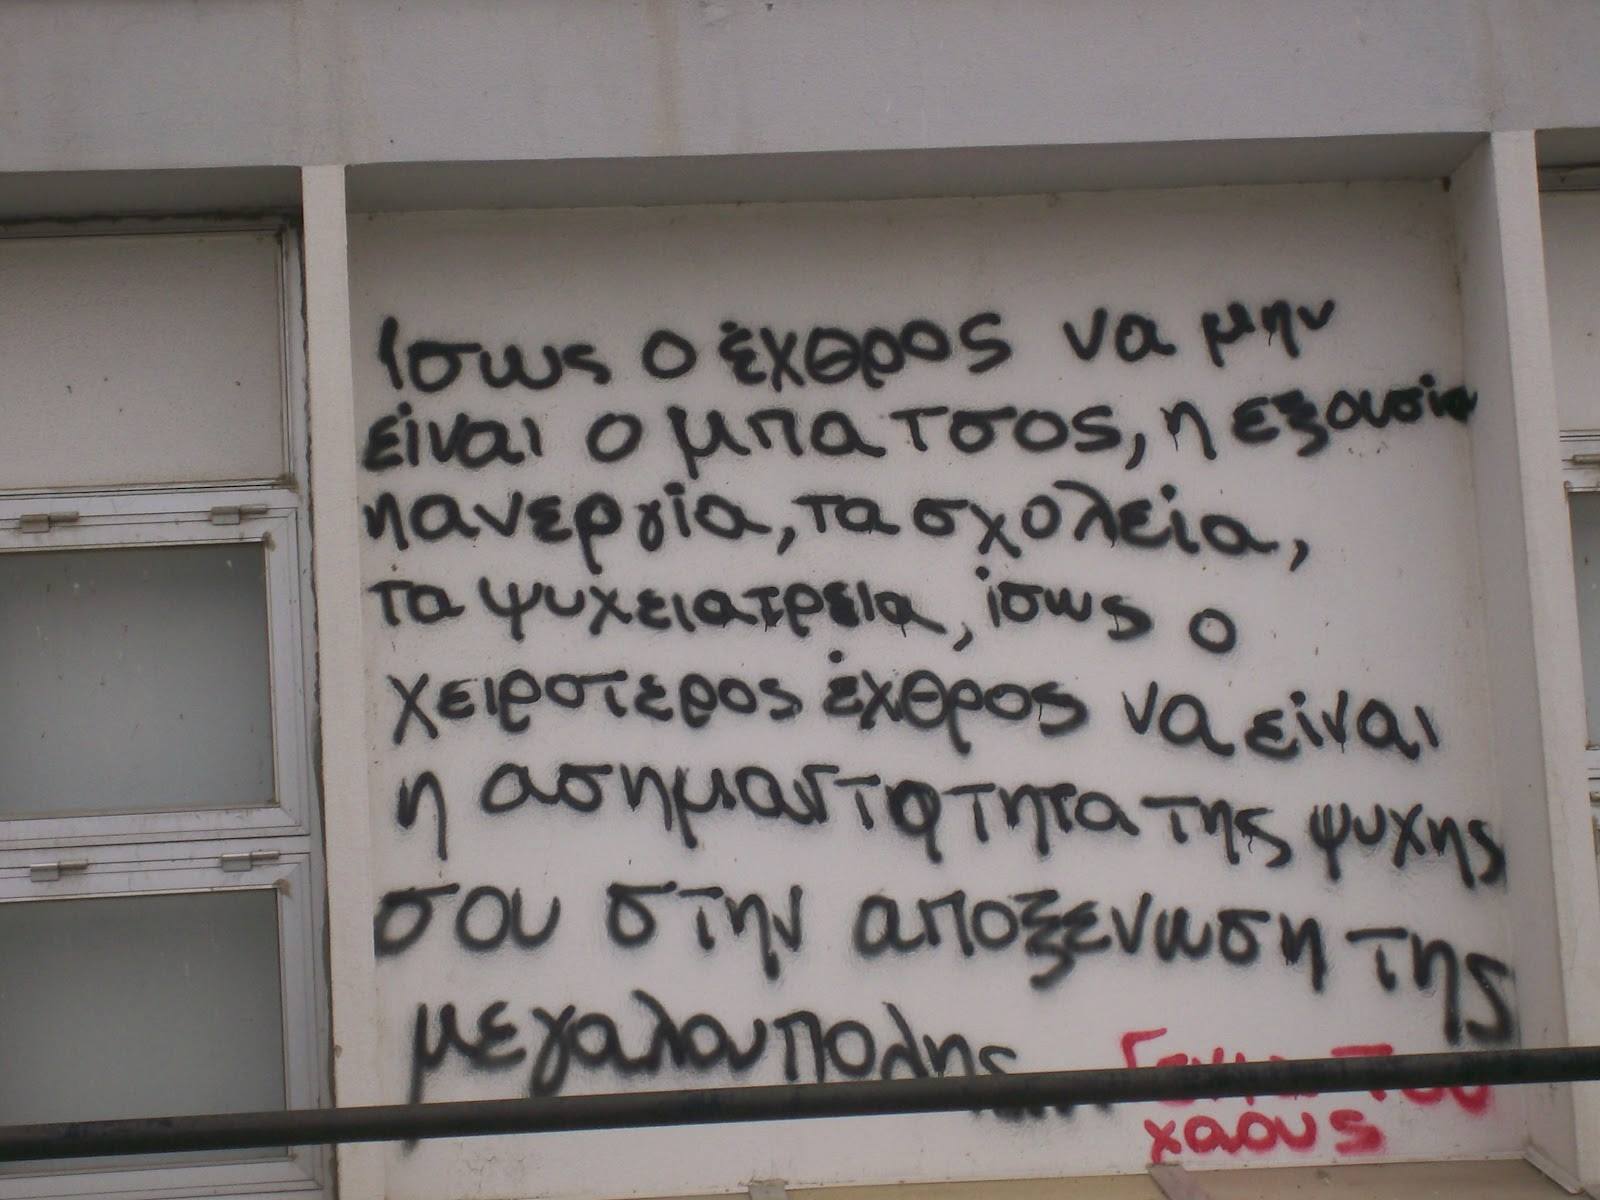 Ισως ο έχθρος να μην
είναι ο μπατσος, η εξουσία
η ανεργία, τα σχολεία,
τα ψυχειατρεια, ίσως ο
χειροτερος έχθρος να είναι
η ασημαντοτητα της ψυχης
σου στην αποξενωση της
μεγαλουπολης
του
χαους